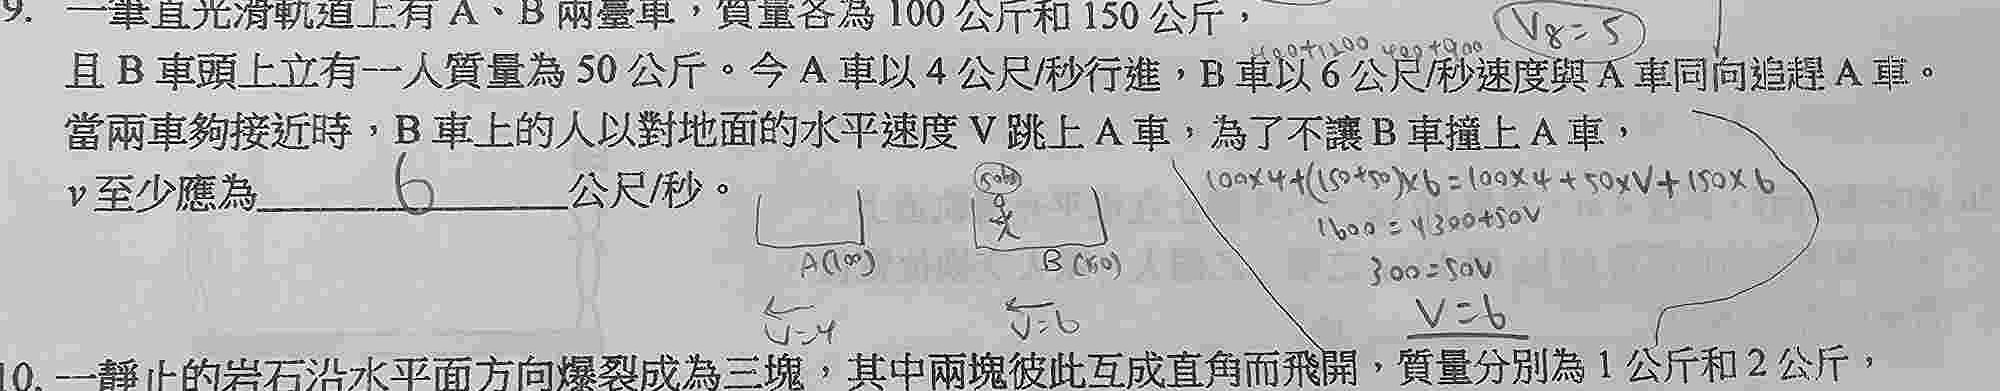 9. 一筆直光滑軌道上有 A、B 兩臺車，質量各為 100 公斤和 150 公斤，
V8=5
400+1200 400+900
且 B 車頭上立有一人質量為 50 公斤。今 A 車以 4 公尺/秒行進，B 車以 6 公尺/秒速度與 A 車同向追趕 A 車。
當兩車夠接近時，B 車上的人以對地面的水平速度 V 跳上 A 車，為了不讓 B 車撞上 A 車，
v 至少應為 6 公尺/秒。
100×4+(150+50)×6=100×4+50×V+150×6
1600=1300+50V
300=50V
V=6
A(100)
B(150)
V=4
V=6
10. 一靜止的岩石沿水平面方向爆裂成為三塊，其中兩塊彼此互成直角而飛開，質量分別為 1 公斤和 2 公斤，